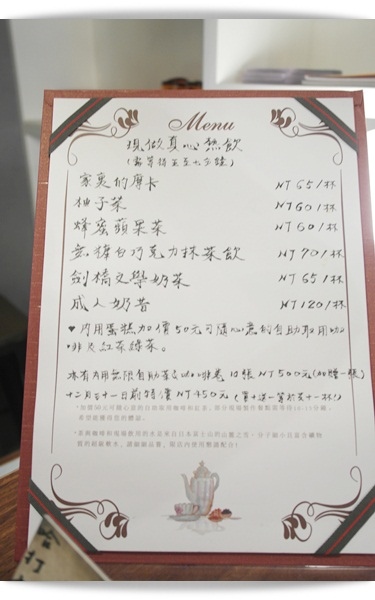 Menu
現做真心熱飲
(需等待五至七分鐘)
家裏的摩卡 NT 65/杯
柚子茶 NT 60/杯
蜂蜜蘋果茶 NT 60/杯
無糖白巧克力抹茶飲 NT 70/杯
劍橋文學奶茶 NT 65/杯
成人奶昔 NT 120/杯
♥ 內用蛋糕加價50元可隨心意的自助取用咖
啡及紅茶綠茶。
本店內用無限自助茶及咖啡卷 10張 NT 500元(加贈一張)
十二月三十一日前特價 NT 450元 (買十送一等於五十一杯!)